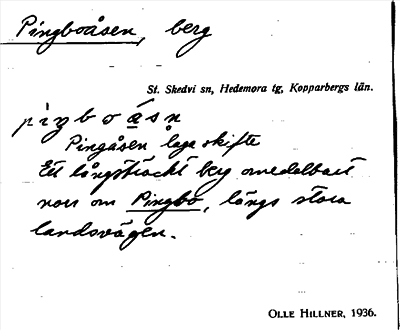 Pingboåsen, berg
St. Skedvi sn, Hedemora tg, Kopparbergs län.
piŋboåsn
Pingåsen laga skifte
Ett långsträckt berg omedelbart
norr om Pingbo, längs stora
landsvägen.
OLLE HILLNER, 1936.